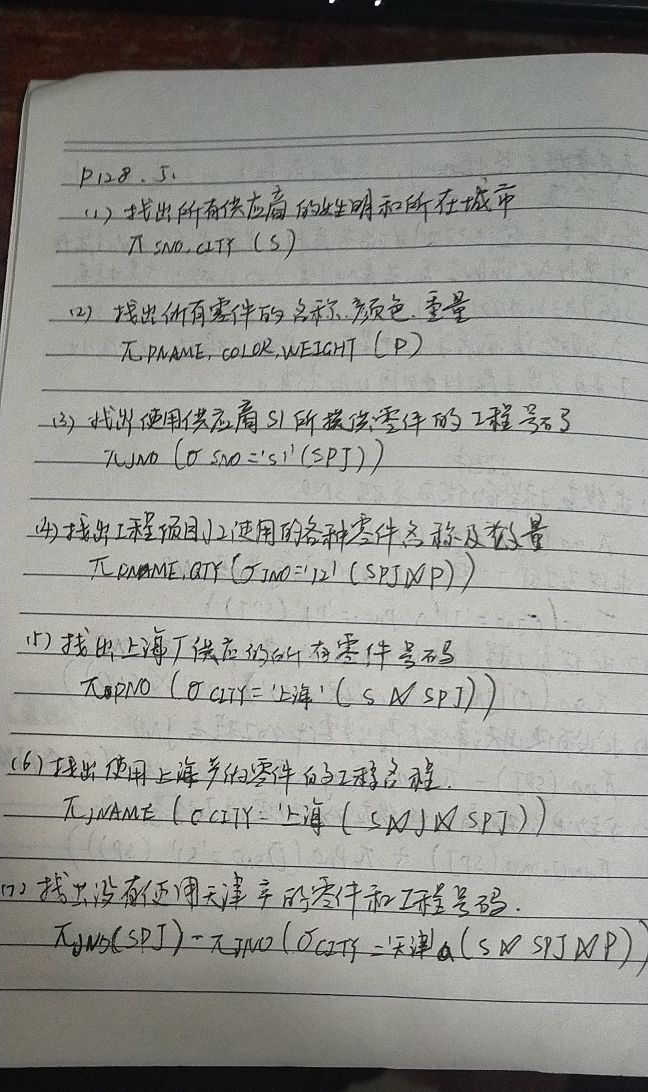 P128.5.
(1) 找出所有供应商的姓明和所在城市
π SNO,CITY (S)
(2) 找出所有零件的名称.颜色.重量
π PNAME, COLOR, WEIGHT (P)
(3) 找出使用供应商S1所提供零件的工程号码
π JNO (σ SNO='S1' (SPJ))
(4) 找出工程项目J2使用的各种零件名称及数量
π PNAME, QTY (σ JNO='J2' (SPJ⋈P))
(5) 找出上海厂供应的所有零件号码
π PNO (σ CITY='上海' (S⋈SPJ))
(6) 找出使用上海产的零件的工程名程.
π JNAME (σ CITY='上海 (S⋈J⋈SPJ))
(7) 找出没有使用天津产的零件和工程号码.
π JNO(SPJ)-π JNO (σ CITY='天津' (S⋈SPJ⋈P))